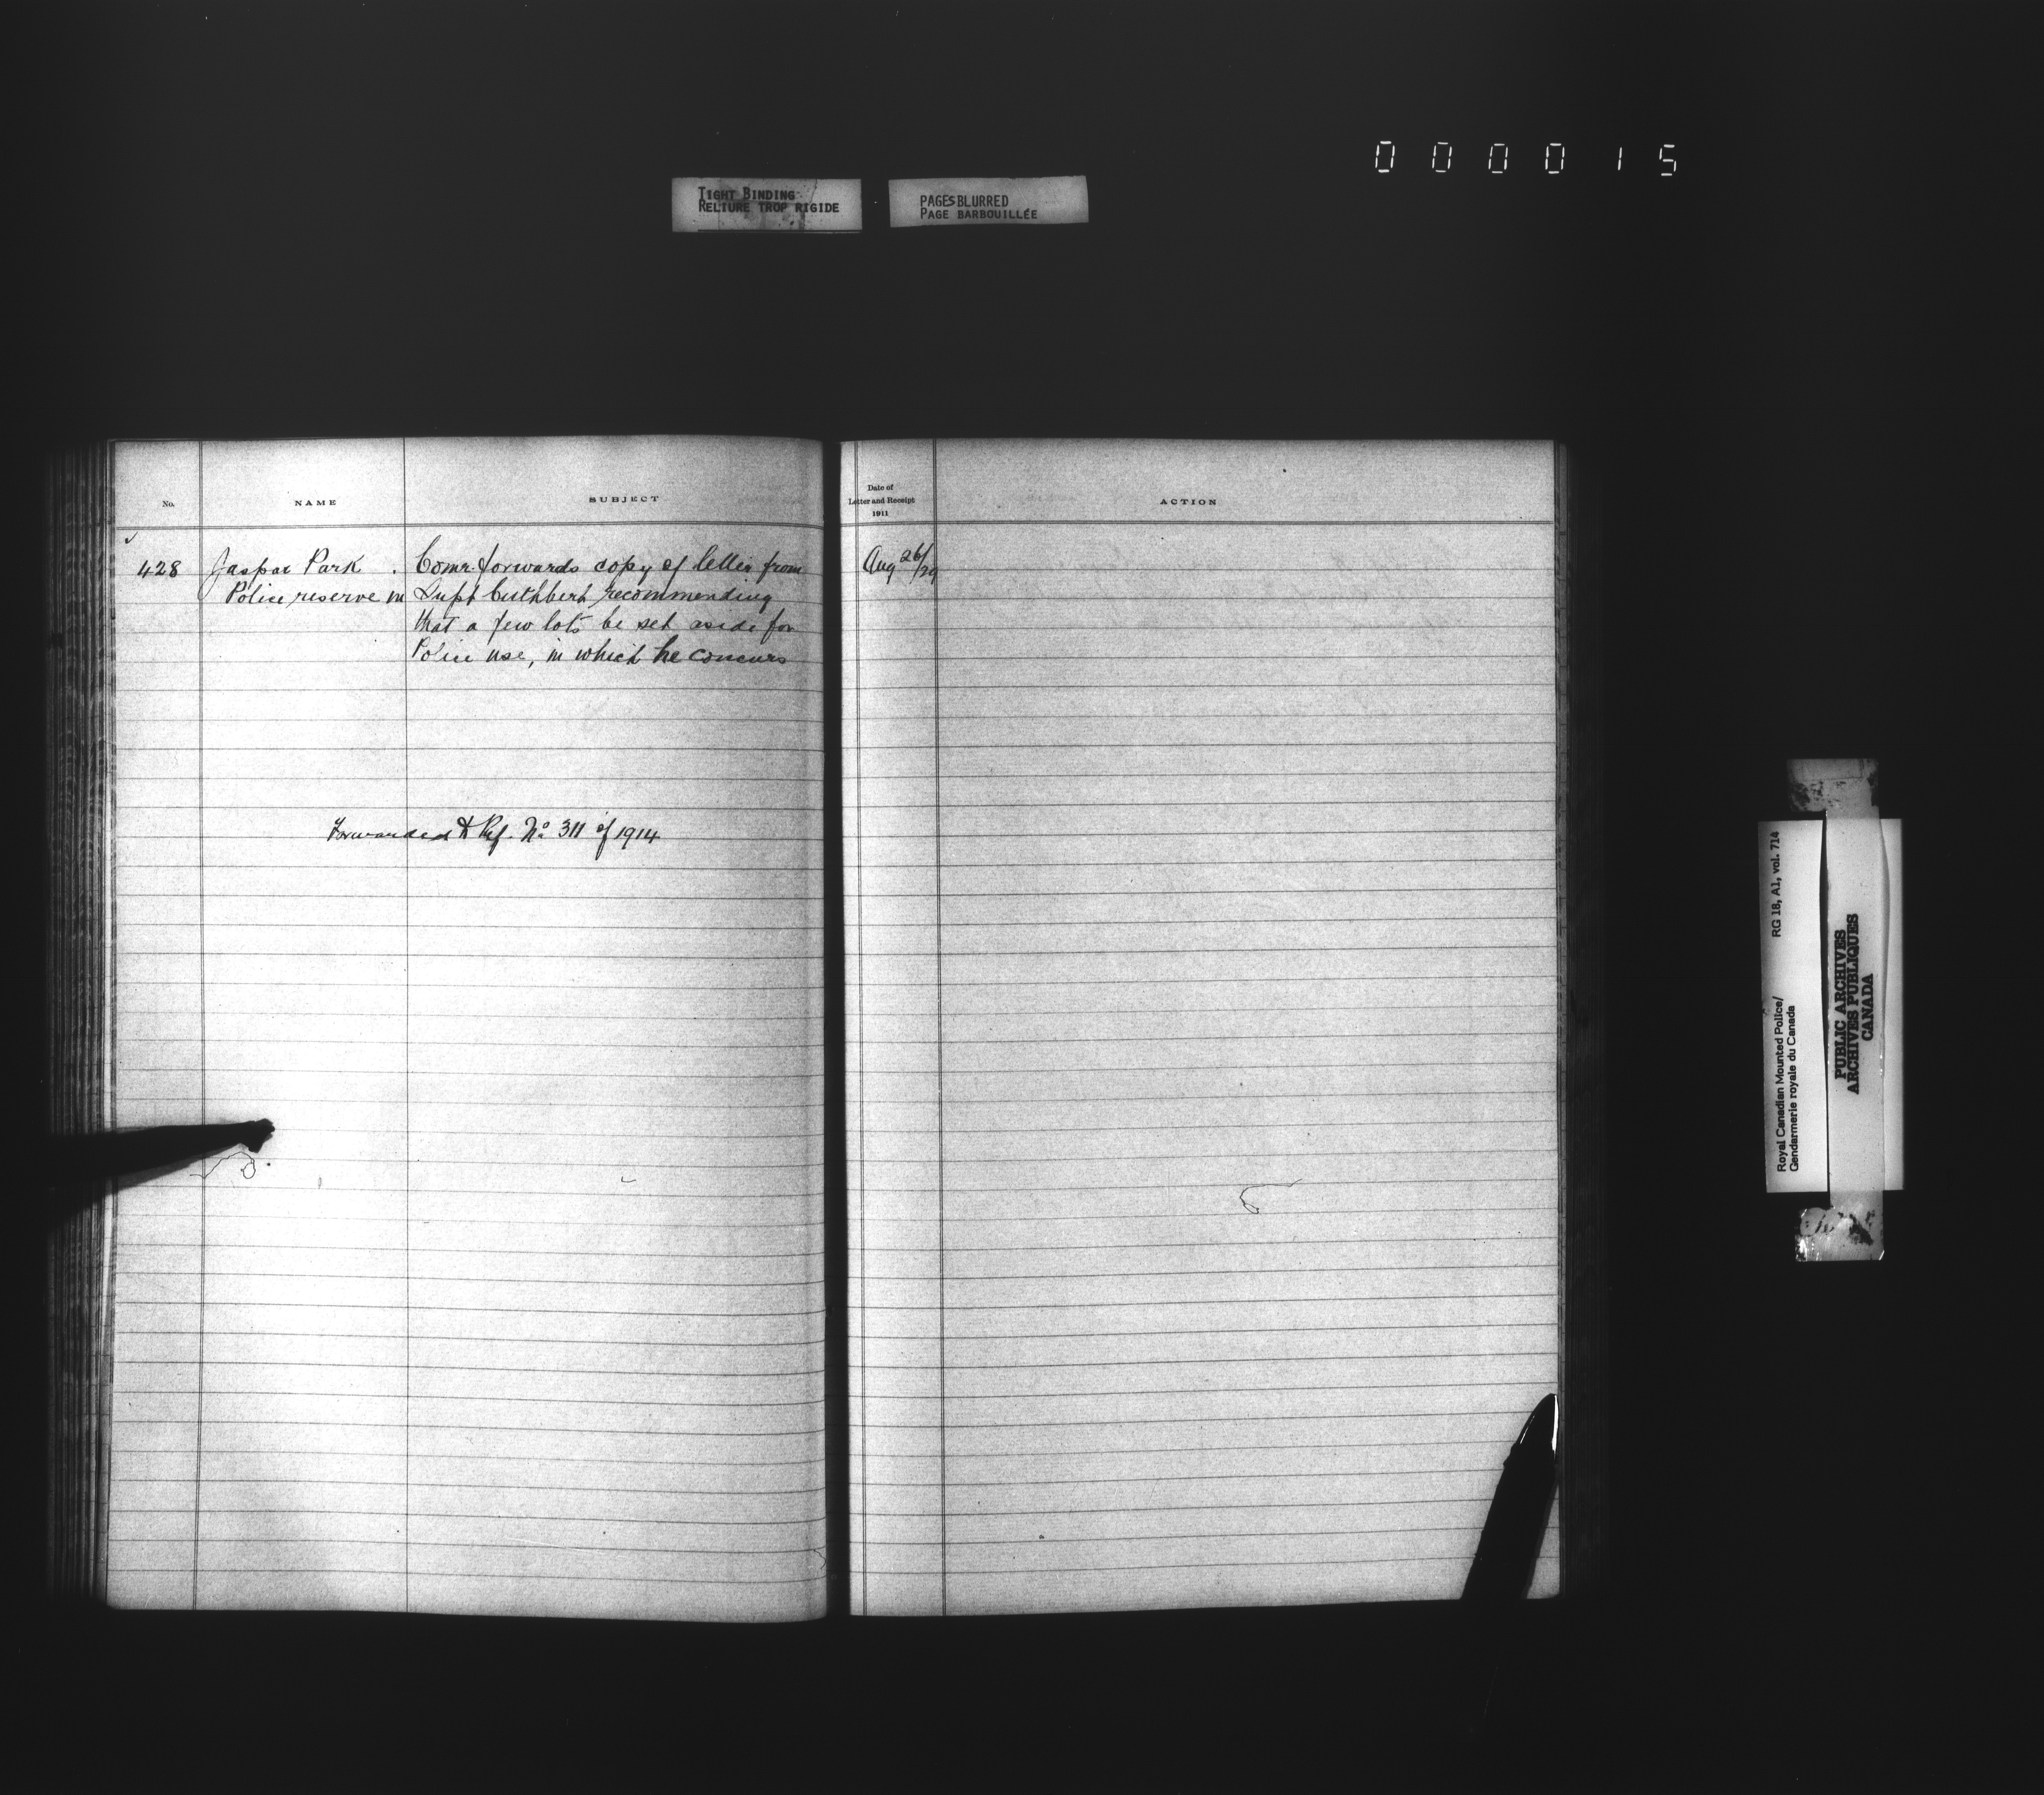 000015
TIGHT BINDING
RELIURE TROP RIGIDE
PAGES BLURRED
PAGE BARBOUILLÉE
No.
NAME
SUBJECT
Date of
Letter and Receipt
1911
ACTION
428 Jaspar Park . Comr. forwards copy of letter from Aug 26/29
Police reserve in Supt Cuthbert recommending
that a few lots be set aside for
Police use, in which he concurs
Forwarded to Ref. No 311 of 1914
Royal Canadian Mounted Police/ RG 18, A1, vol. 714
Gendarmerie royale du Canada
PUBLIC ARCHIVES
ARCHIVES PUBLIQUES
CANADA